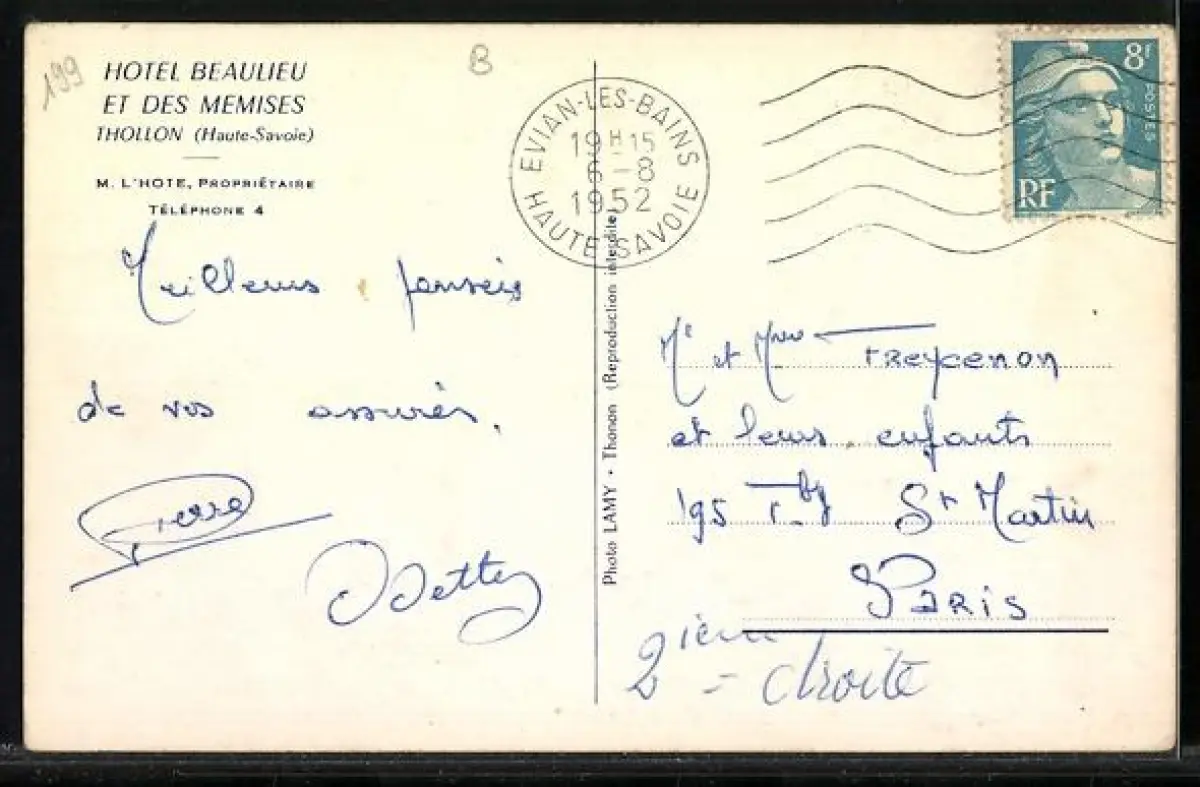 199
B
HOTEL BEAULIEU
ET DES MEMISES
THOLLON (Haute-Savoie)
M. L'HOTE, PROPRIÉTAIRE
TÉLÉPHONE 4
Meilleures pensées
de vos assurés.
Pierre
Odette
EVIAN-LES-BAINS
19H15
6-8
1952
HAUTE-SAVOIE
8F
POSTES
RF
Photo LAMY · Thonon (Reproduction interdite)
Mr et Mme Freycenon
et leurs enfants
195 Fbg St Martin
PARIS
2ième droite